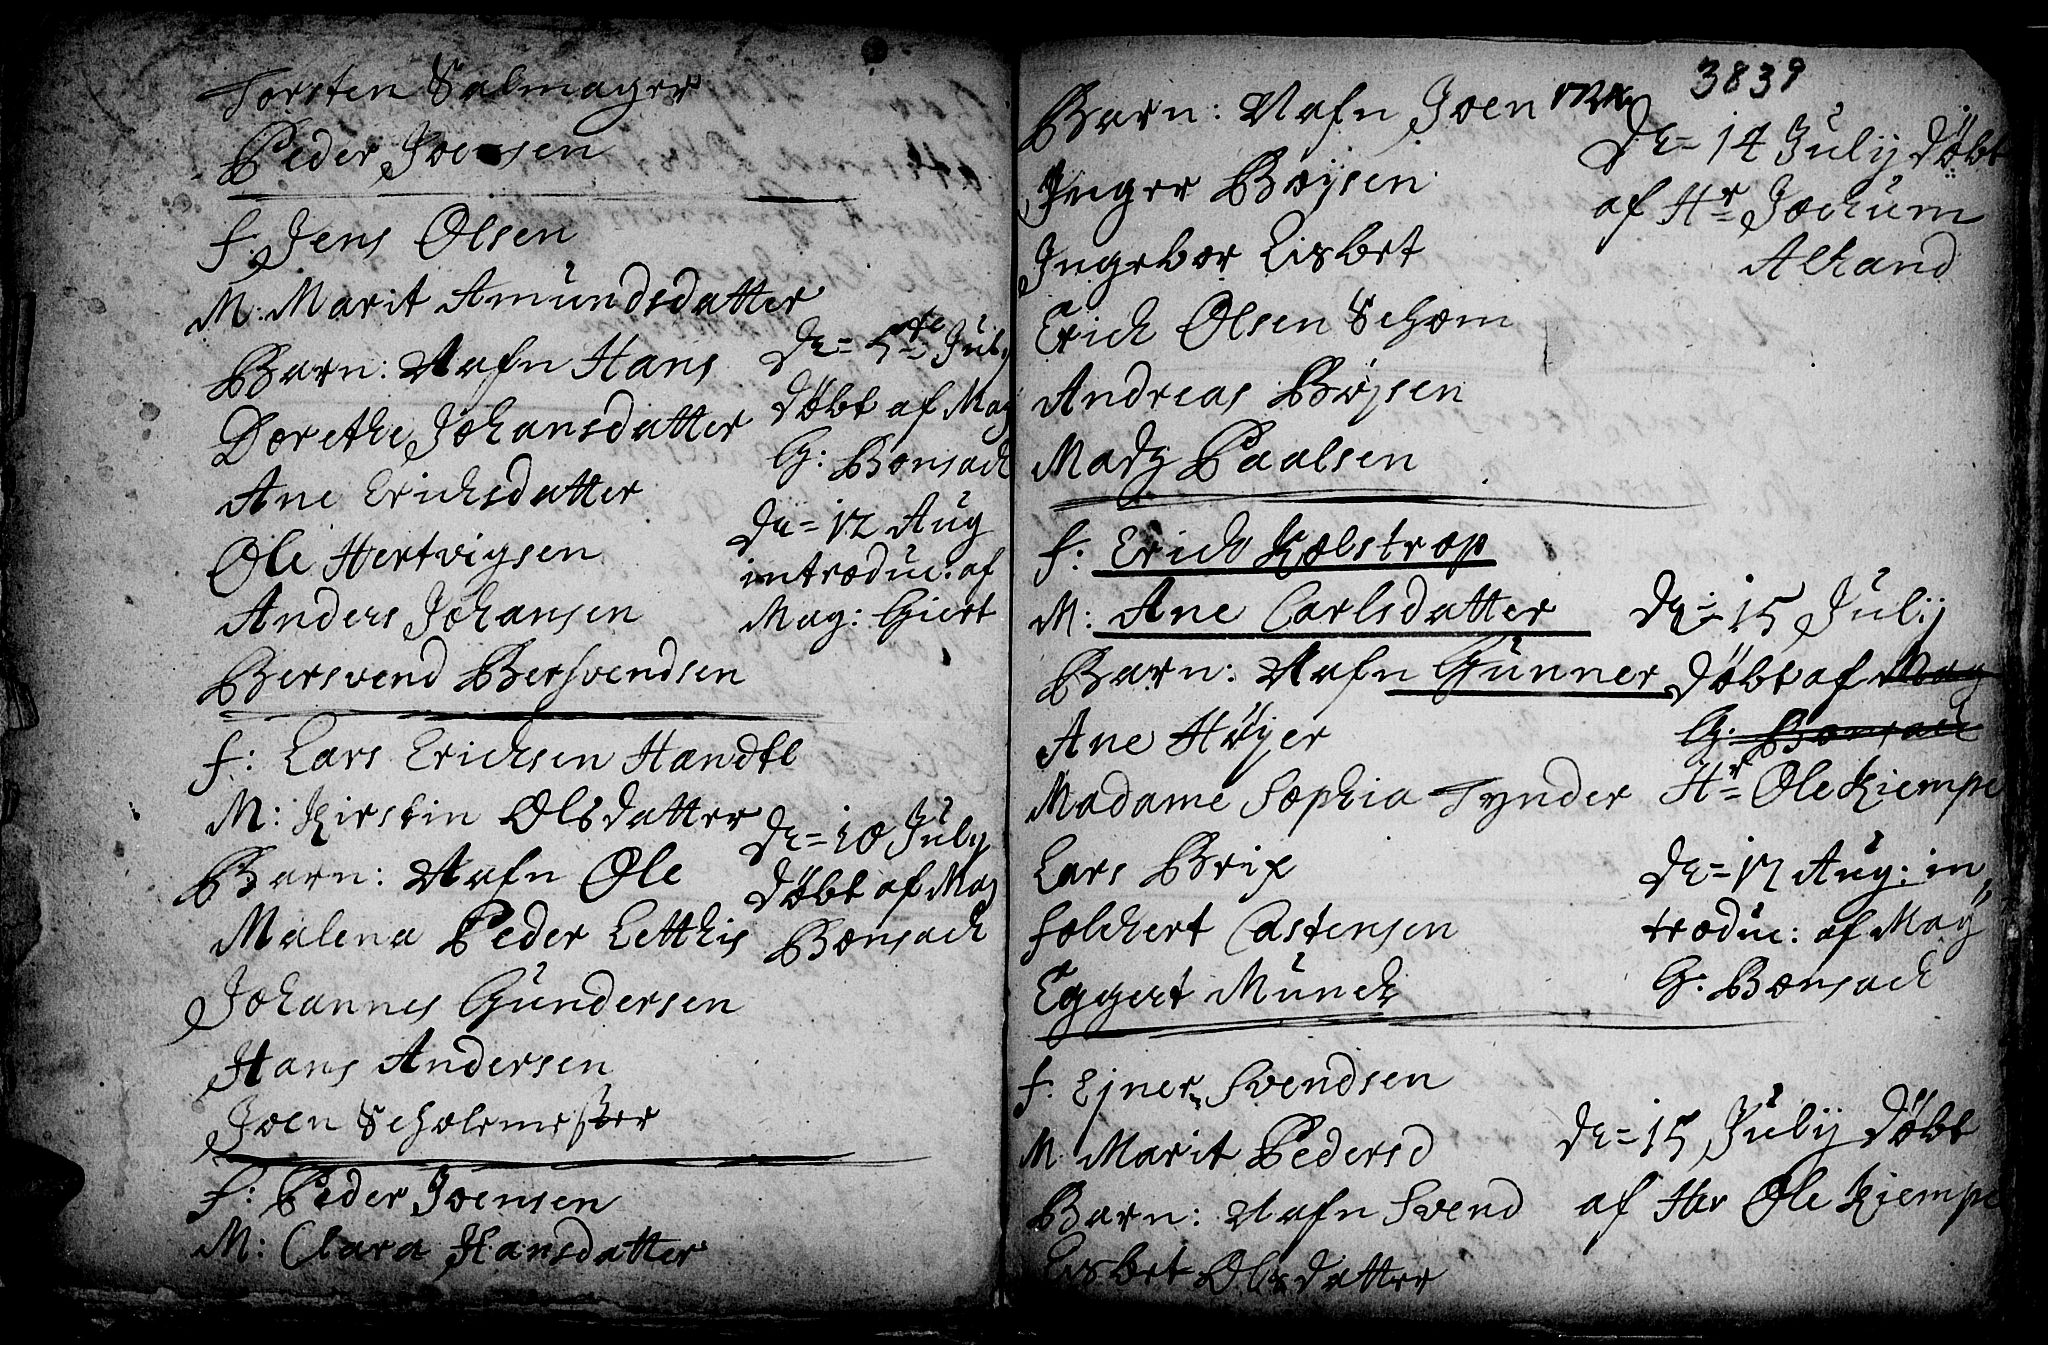 Torsten Salmager
Peder Joensen
f: Jens Olsen
M: Marit Amundsdatter
Barn: Nafn Hans
Dorethe Johansdatter
Ane Erichsdatter
Ole Hertvigsen
Anders Johansen
Bersvend Bersvendsen
d: = 5te July
döbt af Mag
G: Bonsach
d: = 12 Aug
introduc: af
Mag: Giert
f: Lars Erichsen
M: Kirstin Olsdatter
Barn: Nafn Ole
Malena Peder Letthis
Johannes Gundersen
Hans Andersen
Joen Scholemester
d: = 10 July
döbt af Mag
Bonsach
f: Peder Joensen
M: Clara Hansdatter
3839
Barn: Nafn Joen
Inger Boysen
Ingebor Lisbet
Erich Olsen
Andreas Böysen
Mads Paalsen
d: = 14 Julij döbt
af Hr Jochum
f: Erich Kolstrop
M: Ane Carlsdatter
Barn: Nafn Gunner
Ane Höyer
Madame Sophia Tynder
Lars Brix
Folchert Castensen
Eggert Munch
d: = 15 Julij
döbt af Mag
G: Bonsach
Hr Ole Kiempe
d: = 12 Aug: in
troduc: af Mag
G: Bonsach
f: Ejner Svendsen
M: Marit Pedersd
Barn: Nafn Svend
Lisbet Olsdatter
d: = 15 Julij döbt
af Her Ole Kiempe